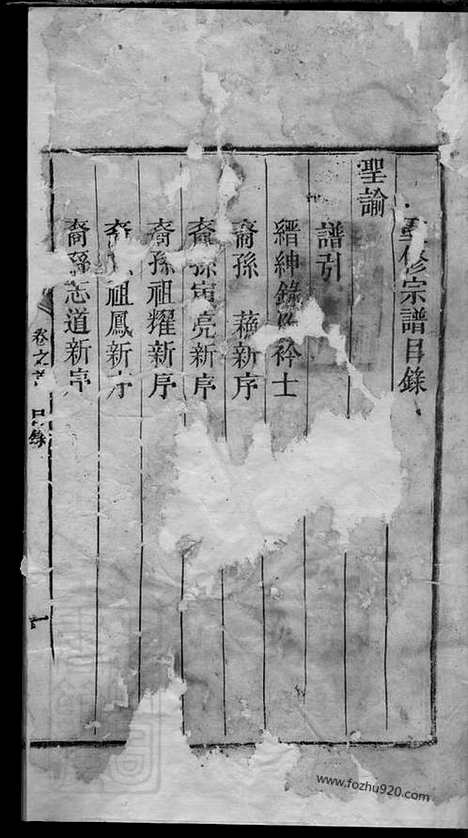 重修宗譜目錄
聖諭
譜引
縉紳錄 衿士
裔孫 藉新序
裔孫寅亮新序
裔孫祖耀新序
裔孫祖鳳新序
裔孫志道新序
卷之首 目錄 一
www.fozhu920.com